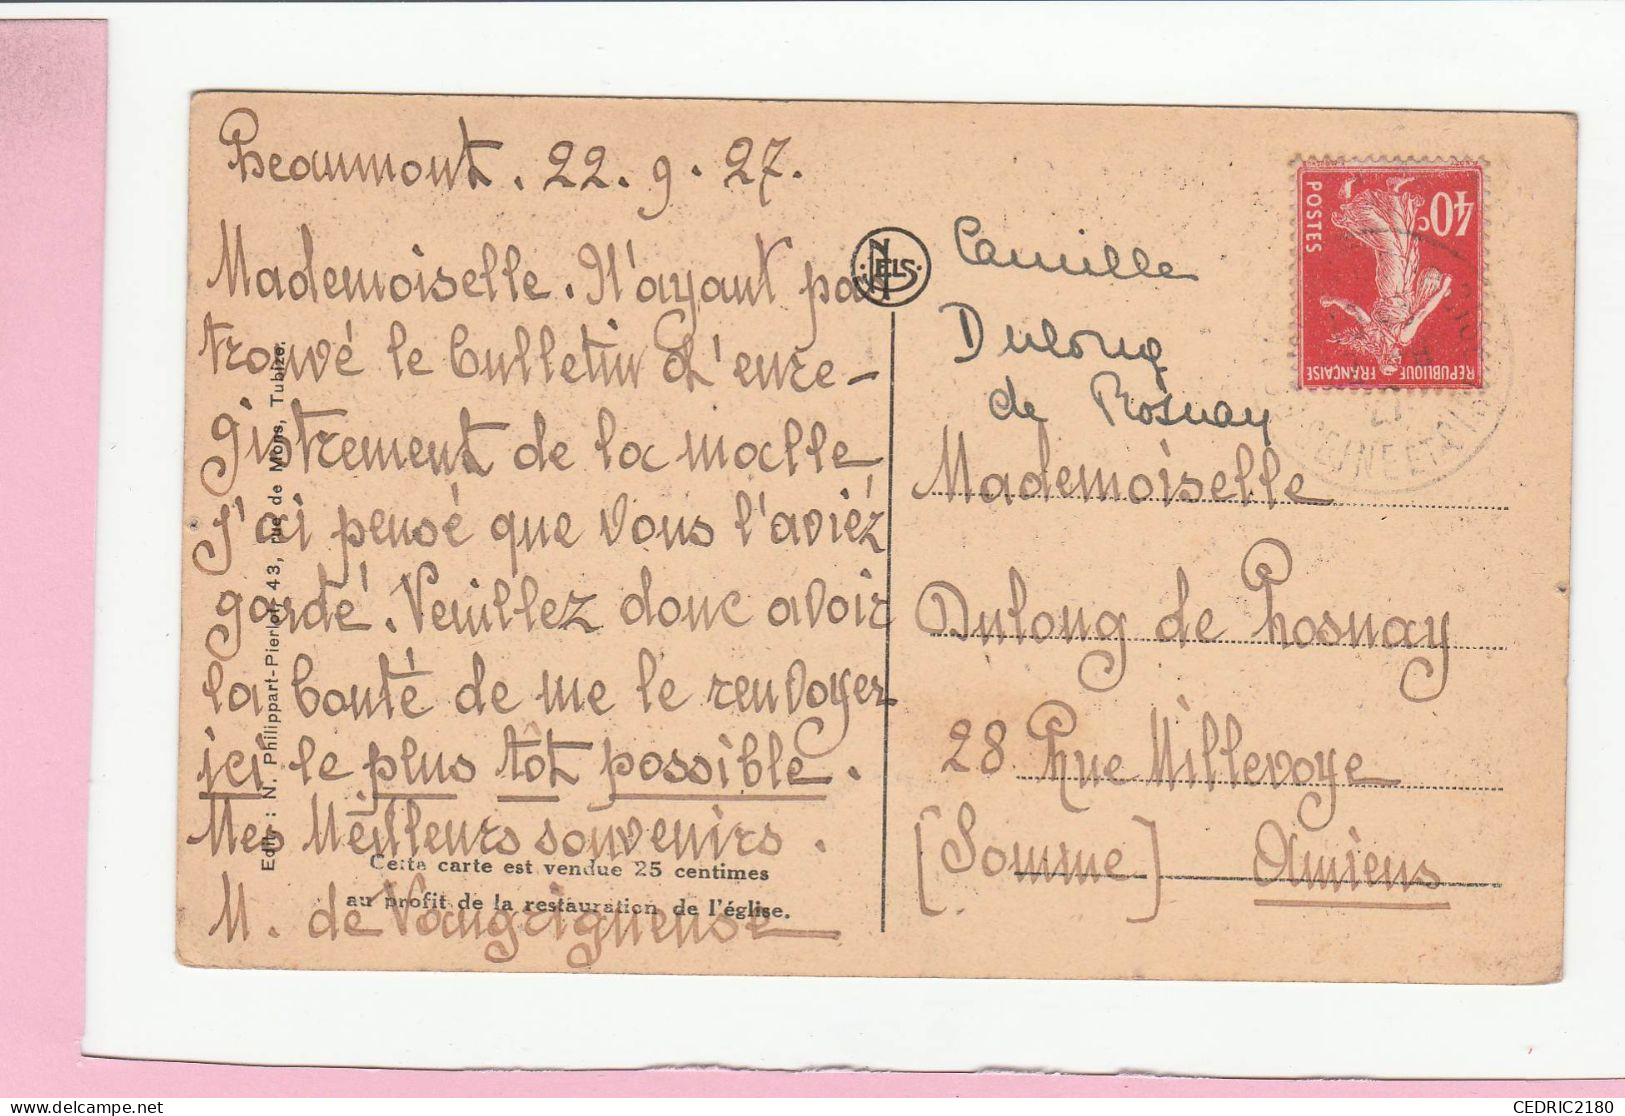 Beaumont. 22. 9. 27.
Mademoiselle. N'ayant pas
trouvé le bulletin d'enre-
gistrement de la malle
j'ai pensé que vous l'aviez
gardé. Veuillez donc avoir
la bonté de me le renvoyer
ici le plus tôt possible.
Mes Meilleurs souvenirs.
M. de Vaugrigneuse
Cette carte est vendue 25 centimes
au profit de la restauration de l'église.
Edit. : N. Philippart-Pierlot, 43, rue de Mons, Tubize.
NELS
Camille
Dulong
de Rosnay
Mademoiselle
Dulong de Rosnay
28 Rue Millevoye
[Somme] Amiens
40c
POSTES
REPUBLIQUE FRANÇAISE
SEINE ET OISE
27
CEDRIC2180